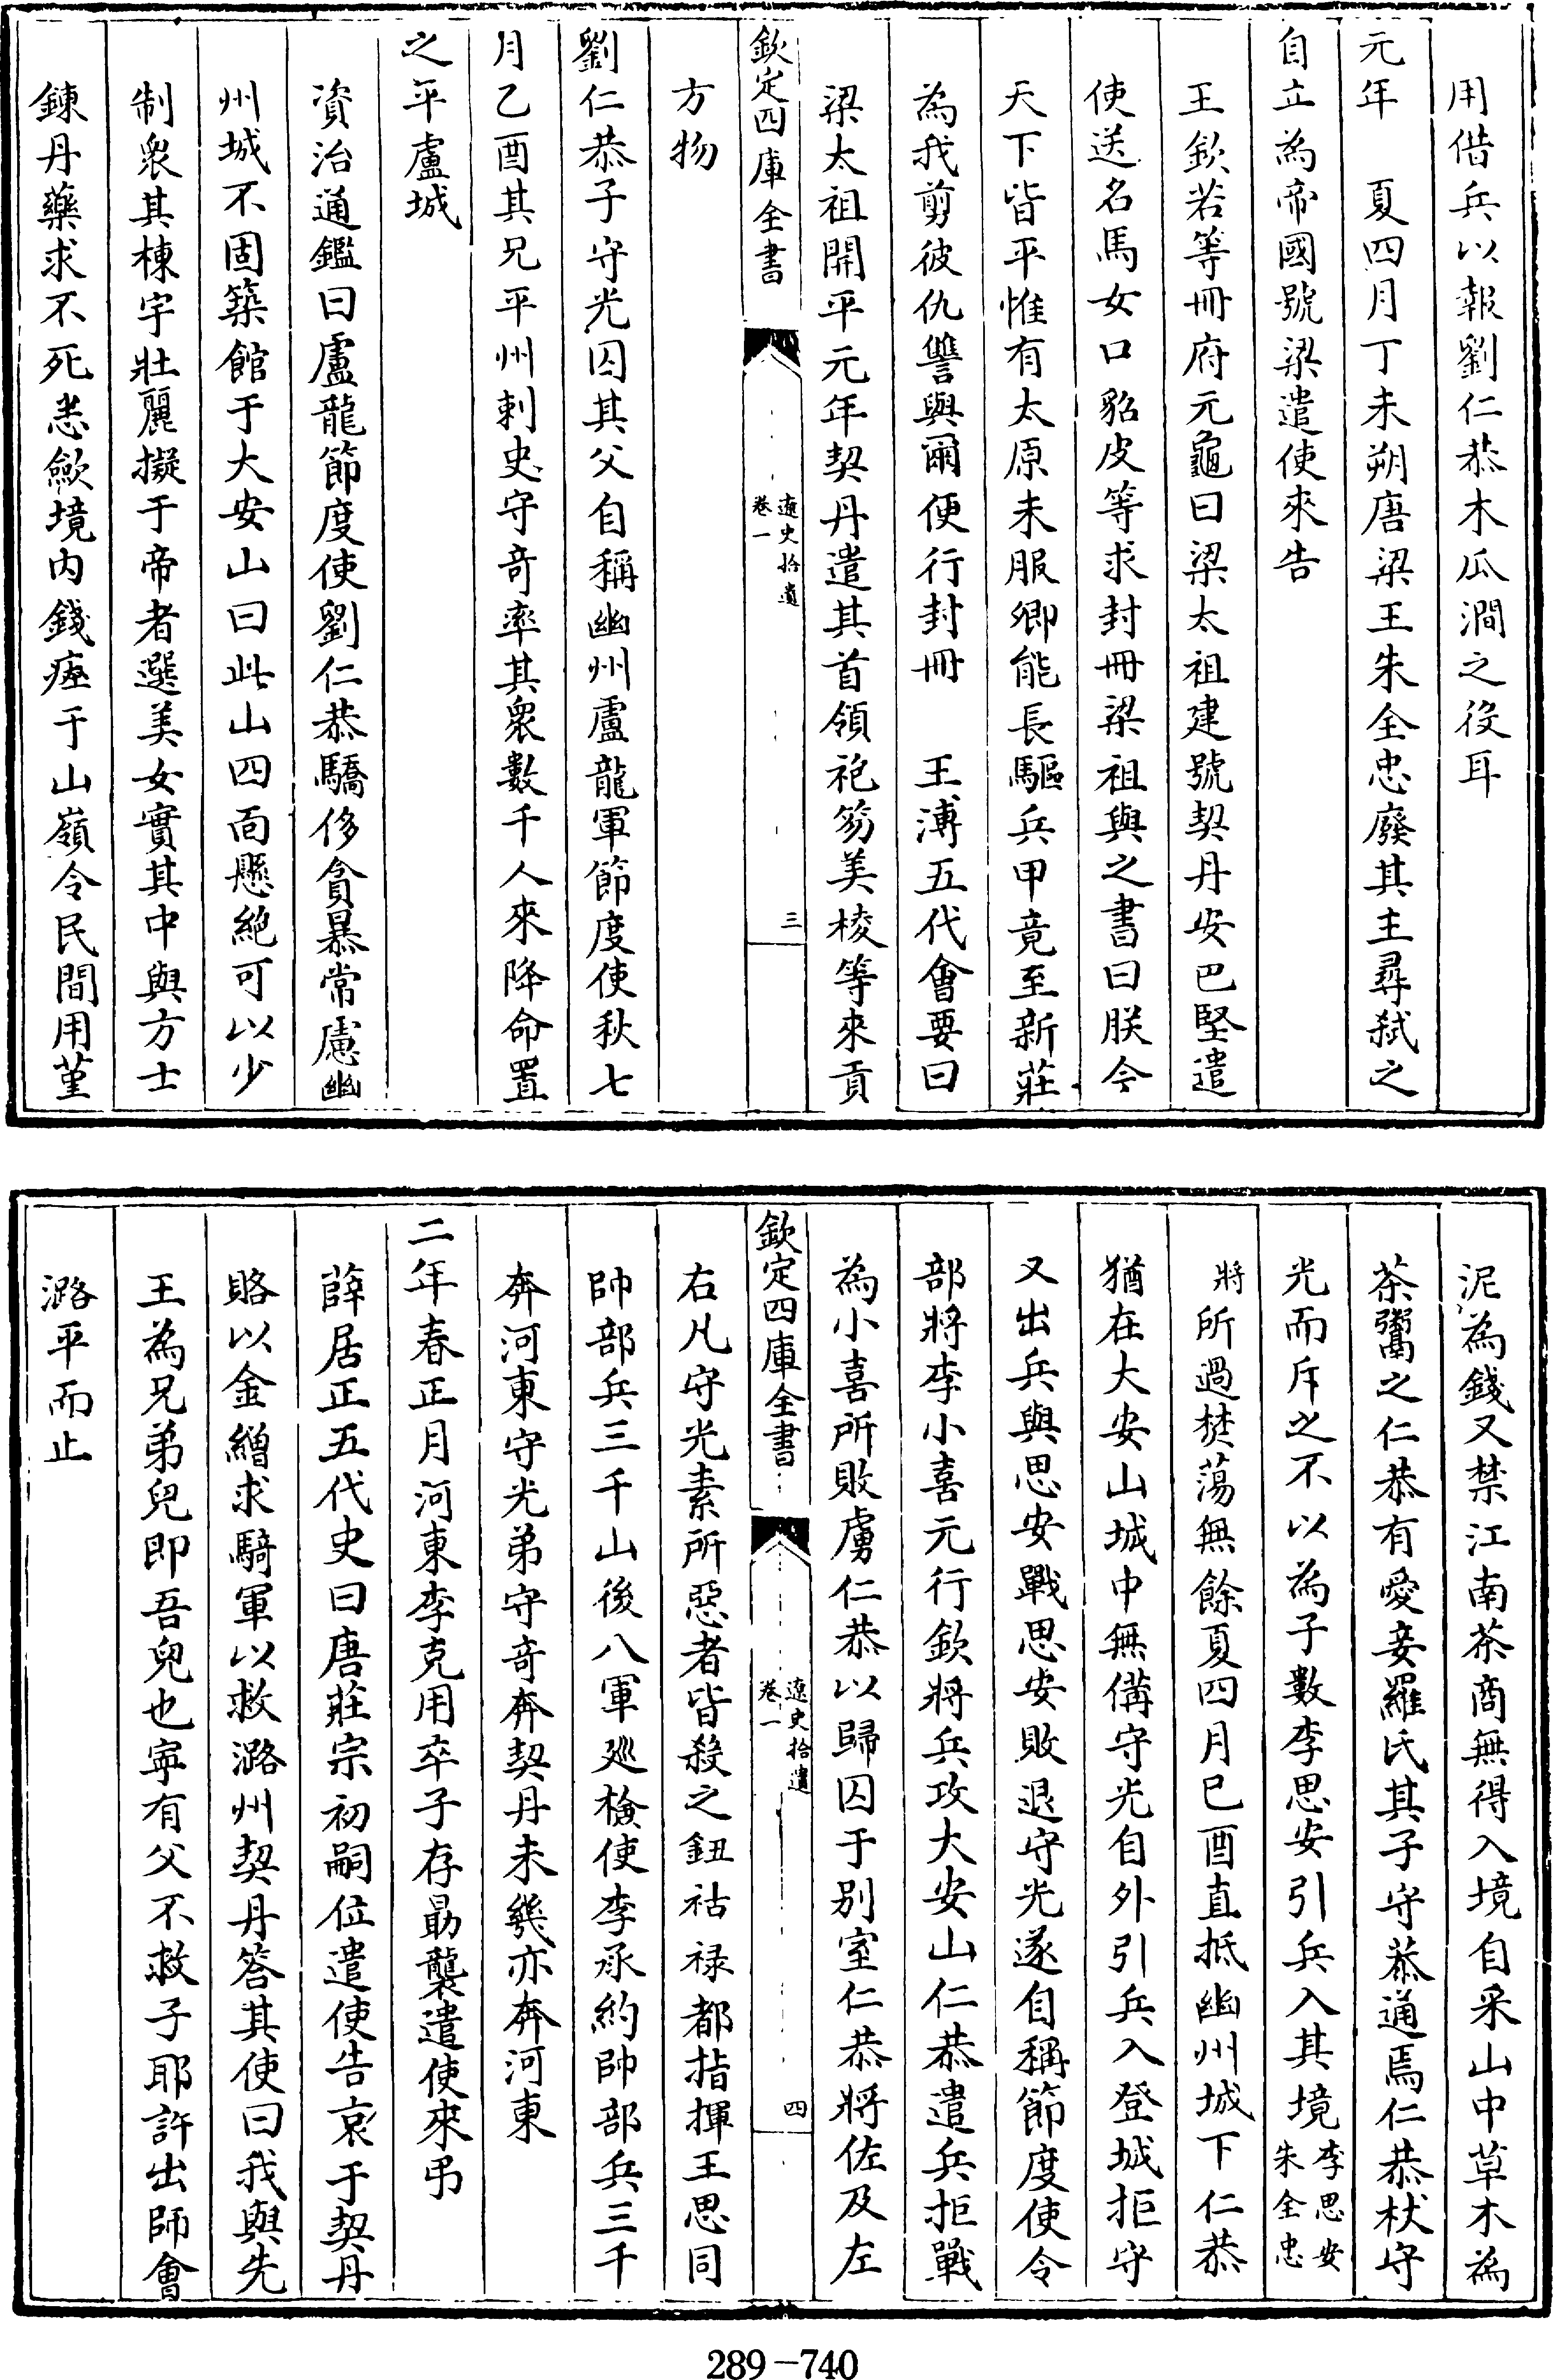 用借兵以報劉仁恭木瓜澗之役耳
元年　夏四月丁未朔唐梁王朱全忠廢其主尋弑之
自立為帝國號梁遣使來告
王欽若等冊府元龜曰梁太祖建號契丹安巴堅遣
使送名馬女口貂皮等求封冊梁祖與之書曰朕今
天下皆平惟有太原未服卿能長驅兵甲竟至新莊
為我剪彼仇讐與爾便行封冊　王溥五代會要曰
梁太祖開平元年契丹遣其首領袍笏美棱等來貢
欽定四庫全書
遼史拾遺
卷一
三
方物
劉仁恭子守光囚其父自稱幽州盧龍軍節度使秋七
月乙酉其兄平州刺史守奇率其衆數千人來降命置
之平盧城
資治通鑑曰盧龍節度使劉仁恭驕侈貪暴常慮幽
州城不固築館于大安山曰此山四面懸絶可以少
制衆其棟宇壯麗擬于帝者選美女實其中與方士
鍊丹藥求不死悉斂境内錢瘞于山嶺令民間用堇
泥為錢又禁江南茶商無得入境自采山中草木為
茶鬻之仁恭有愛妾羅氏其子守恭通焉仁恭杖守
光而斥之不以為子數李思安引兵入其境李思安
朱全忠
將所過焚蕩無餘夏四月已酉直抵幽州城下仁恭
猶在大安山城中無備守光自外引兵入登城拒守
又出兵與思安戰思安敗退守光遂自稱節度使令
部將李小喜元行欽將兵攻大安山仁恭遣兵拒戰
為小喜所敗虜仁恭以歸囚于别室仁恭將佐及左
欽定四庫全書
遼史拾遺
卷一
四
右凡守光素所惡者皆殺之鈕祜禄都指揮王思同
帥部兵三千山後八軍廵檢使李承約帥部兵三千
奔河東守光弟守奇奔契丹未幾亦奔河東
二年春正月河東李克用卒子存勗襲遣使來弔
薛居正五代史曰唐莊宗初嗣位遣使告哀于契丹
賂以金繒求騎軍以救潞州契丹答其使曰我與先
王為兄弟兒即吾兒也寧有父不救子耶許出師會
潞平而止
289-740